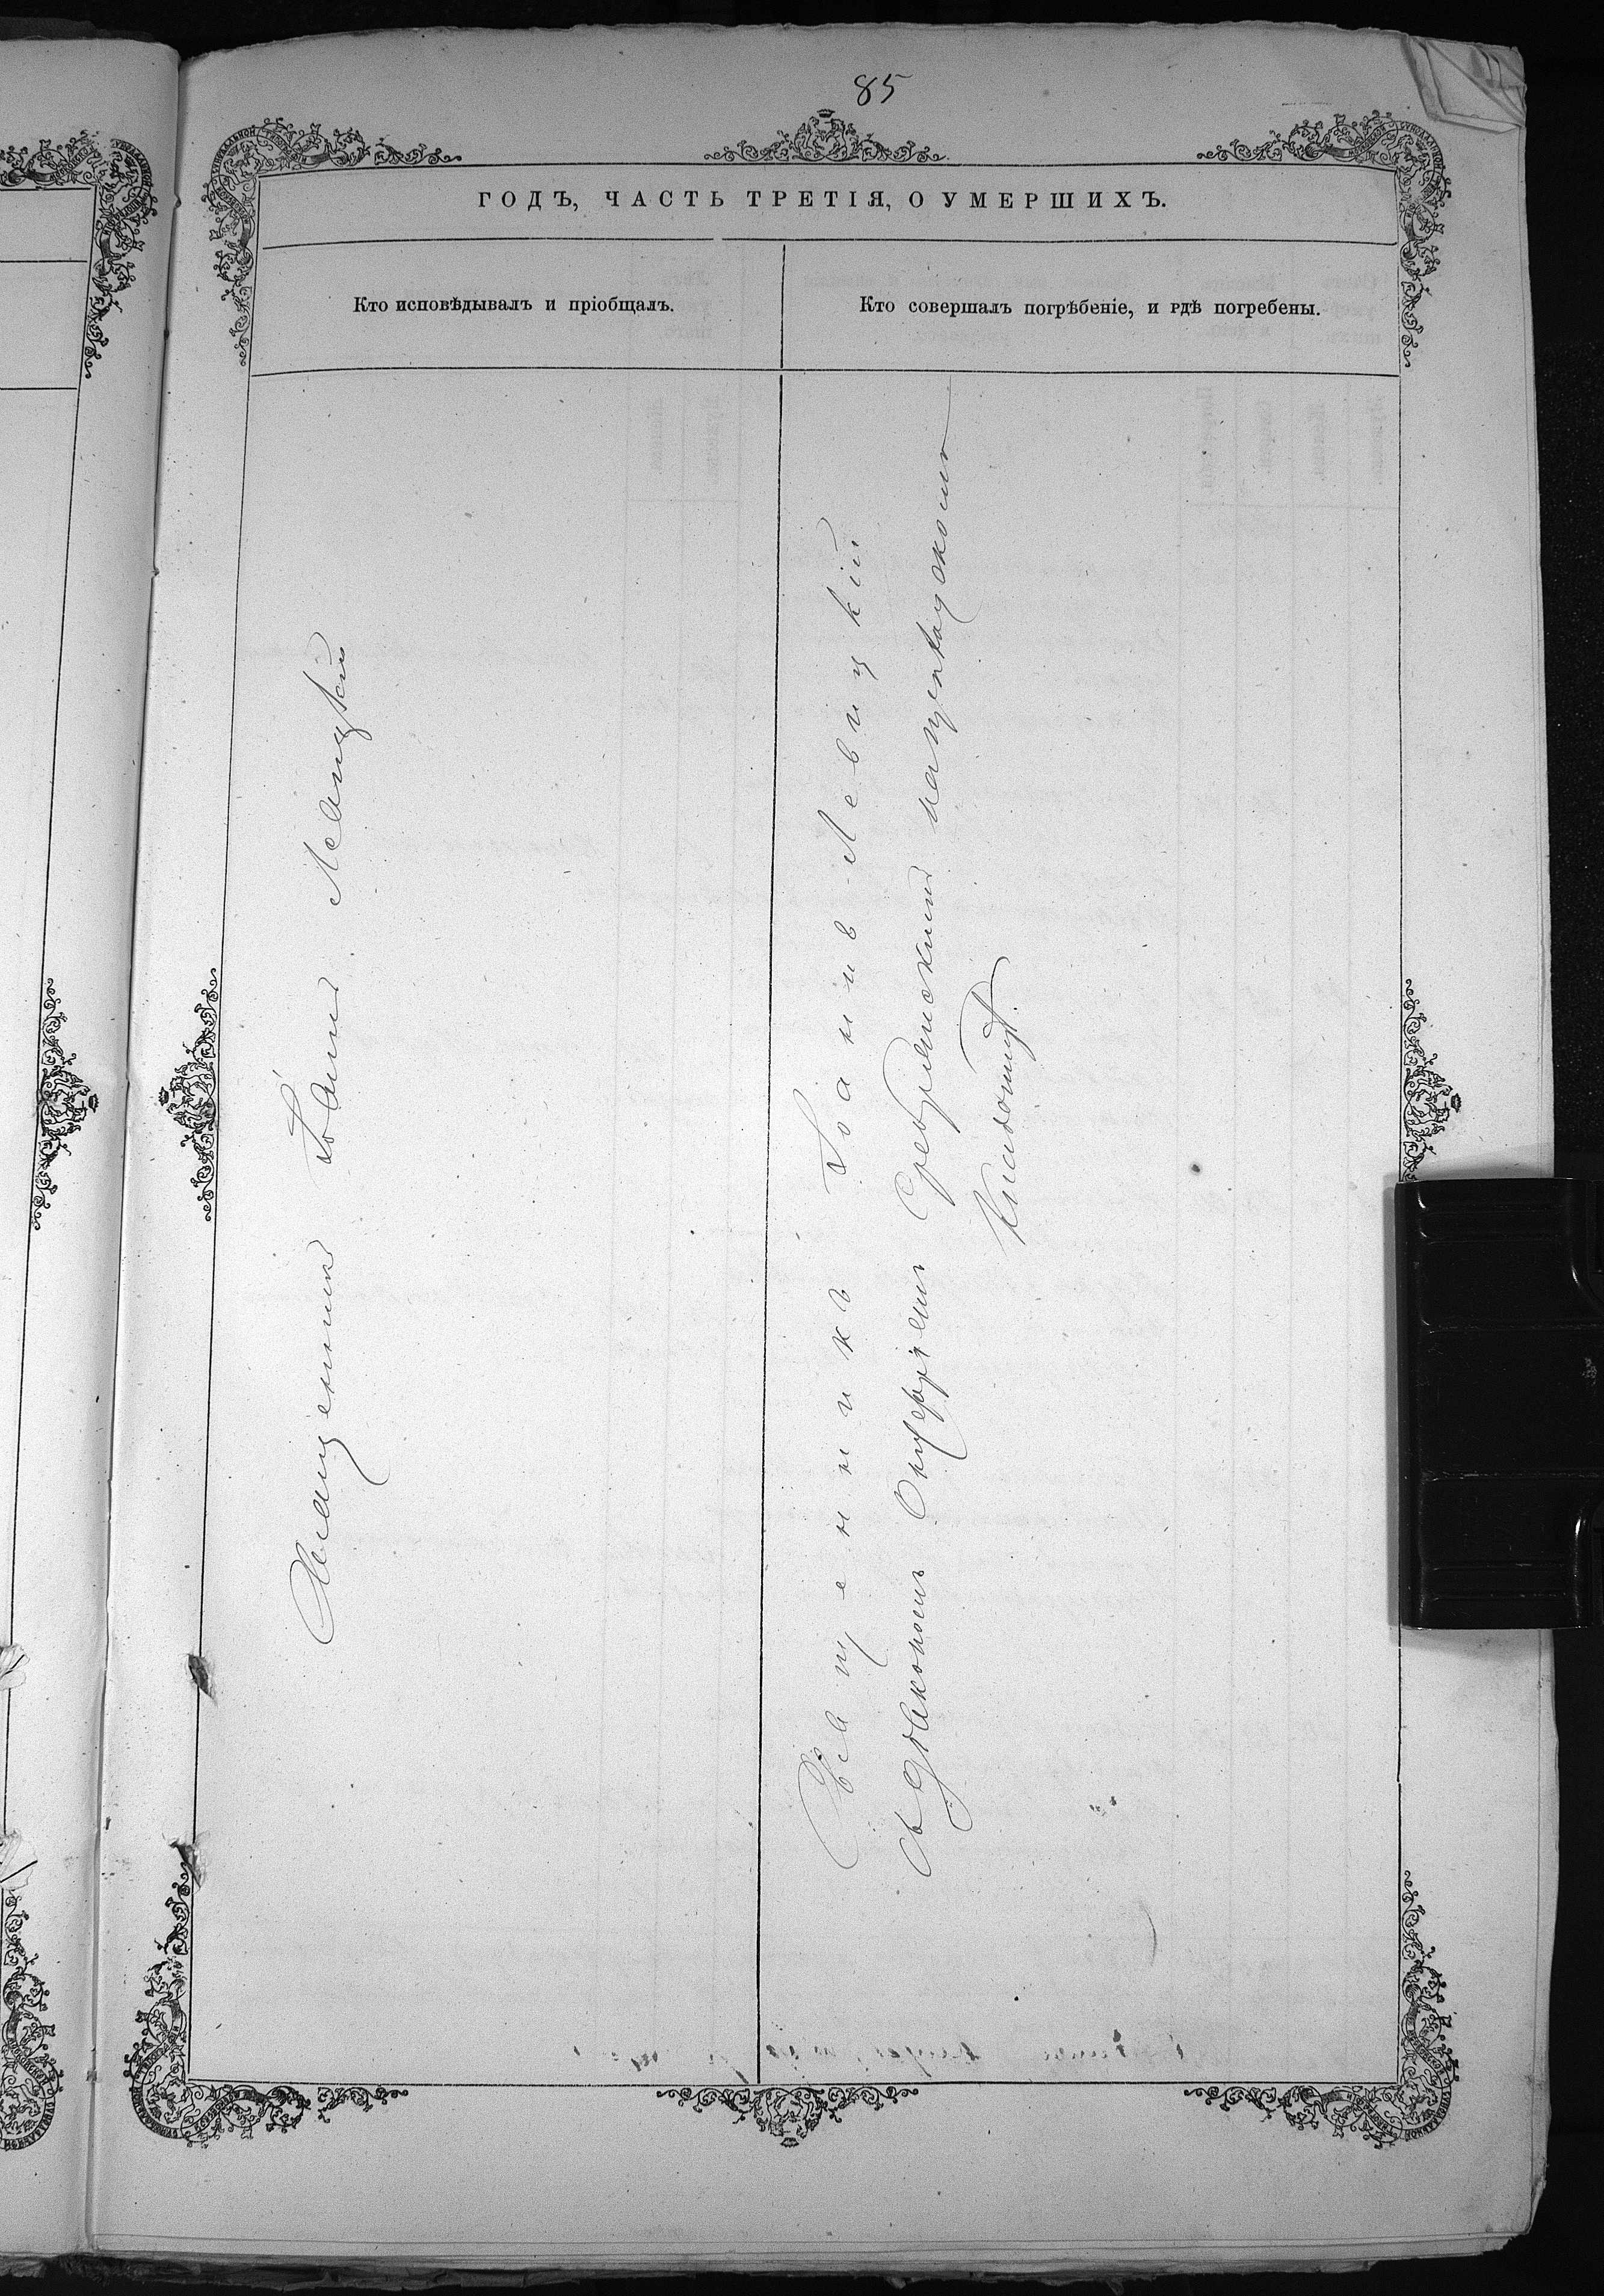 85
ГОДЪ, ЧАСТЬ ТРЕТІЯ, О УМЕРШИХЪ.
Кто исповѣдывалъ и пріобщалъ.
Кто совершалъ погрѣбеніе, и гдѣ погребены.
Священникъ Іоаннъ Левицкій
Священникъ Іоаннъ Левицкій
съ діакономъ Онуфріемъ Сребрянскимъ на приходскомъ
Кладбищѣ.